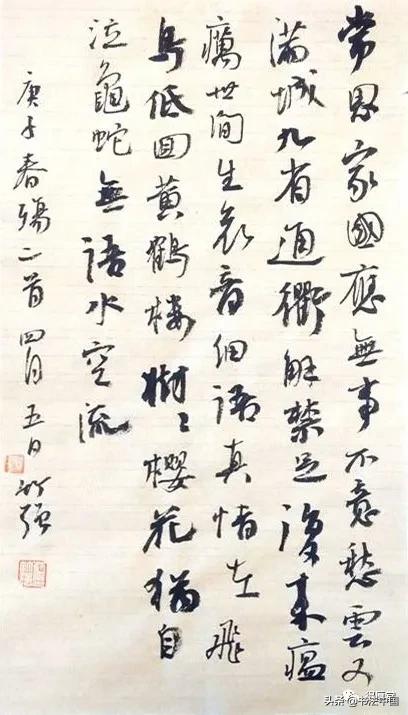 常思家國應無事不意愁雲又
滿城九省通衢解禁足復來瘟
癘世間生哀音細語真情在飛
鳥低回黃鶴樓樹〻櫻花猶自
泣龜蛇無語水空流
庚子春殤二首四月五日 强
头条@书法中国